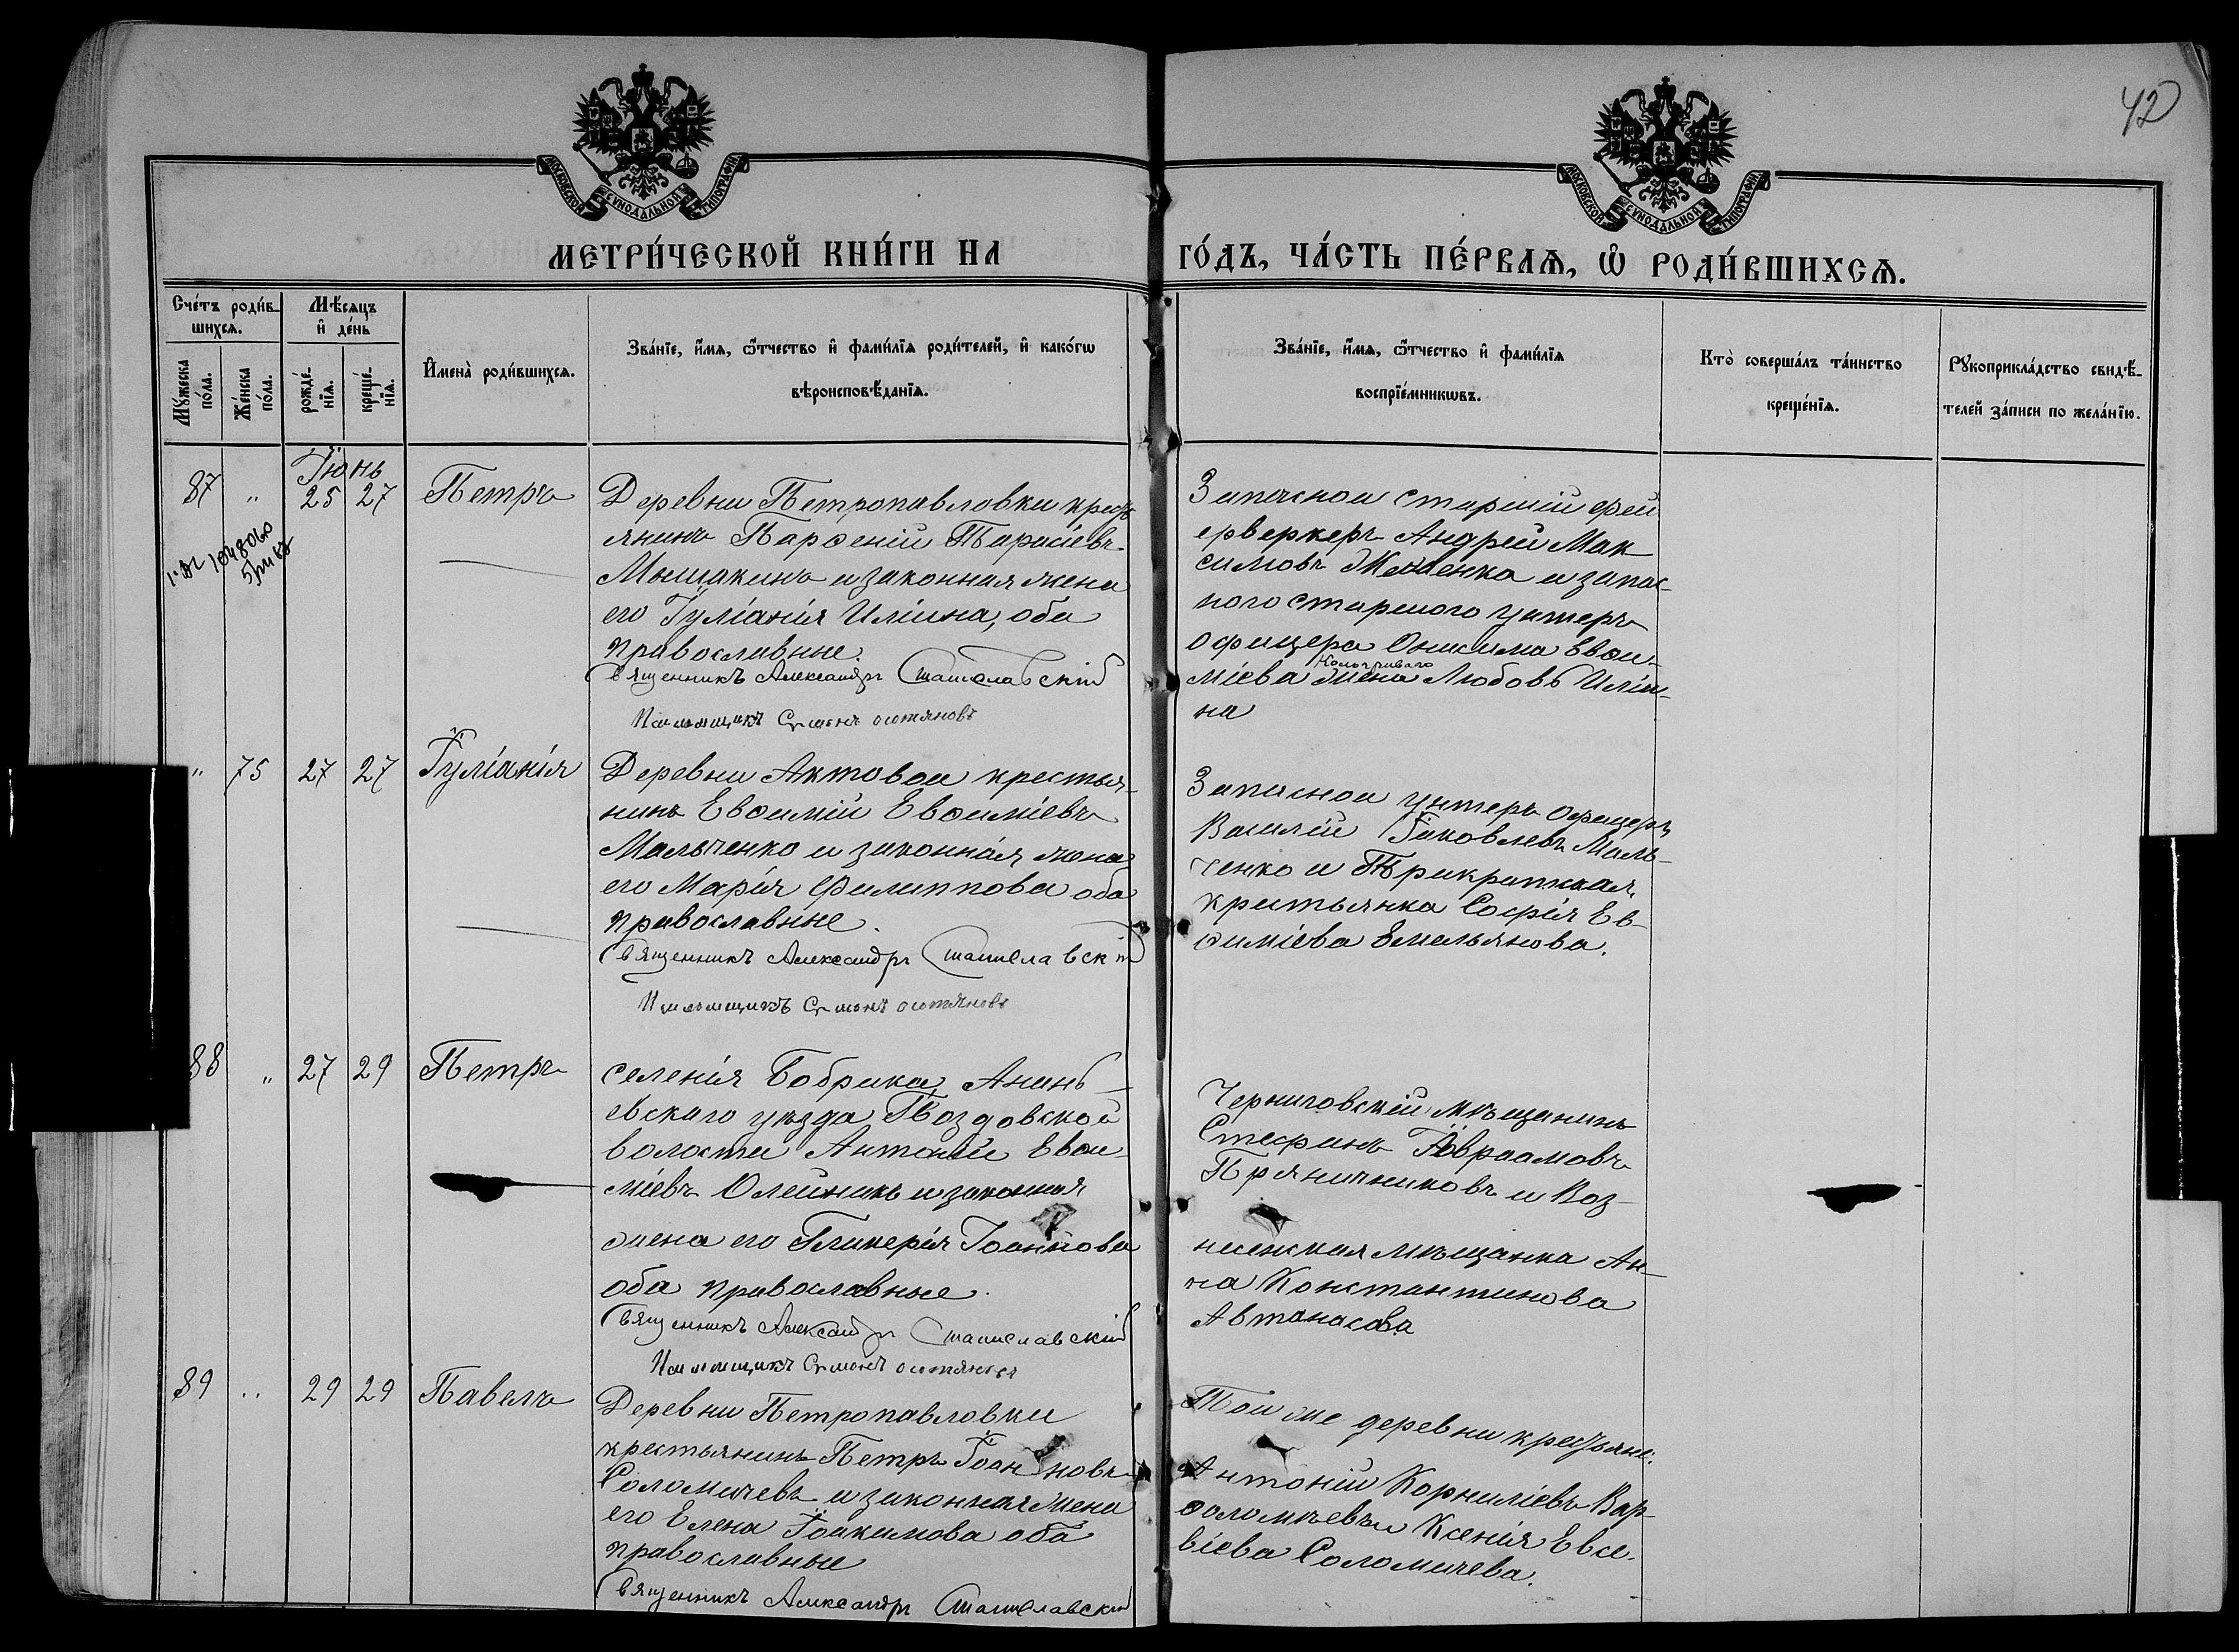 42
МОСКОВСКОЙ СѴНОДАЛЬНОЙ ТИПОГРАФІИ
МОСКОВСКОЙ СѴНОДАЛЬНОЙ ТИПОГРАФІИ
МЕТРИ́ЧЕСКОЙ КНИ́ГИ НА ГО́ДЪ, ЧА́СТЬ ПЕ́РВАѦ, Ѡ҆ РОДИ́ВШИХСѦ.
Сче́тъ роди́в-
шихсѧ.
Мѣ́сѧцъ
и҆ де́нь
Мꙋ́жеска
по́ла.
Же́нска
по́ла.
рожде́-
нїѧ.
креще́-
нїѧ.
И҆мена̀ роди́вшихсѧ.
Зва́нїе, и҆́мѧ, ѻ҆́тчество и҆ фами́лїѧ роди́телей, и҆ како́гѡ
вѣроисповѣ́данїѧ.
Зва́нїе, и҆́мѧ, ѻ҆́тчество и҆ фами́лїѧ
воспрїе́мникѡвъ.
Кто̀ соверша́лъ та́инство
креще́нїѧ.
Рꙋкоприкла́дство свидѣ́-
телей за́писи по жела́нїю.
Іюнь
87 " 25 27 Петръ
Деревни Петропавловки крест
янинъ Парѳеній Тарасіевъ
Мышакинъ и законная жена
его Іуліанія Иліина, оба
православные.
Священникъ Александръ Станиславскій
Псаломщикъ Сѵмеонъ
Запасной старшій фей
ерверкеръ Андрей Мак
симовъ и запас-
ного старшого унтеръ
офицера Онисима Евѳи-
міева жена Любовь Иліи-
на
" 75 27 27 Іуліанія
Деревни Актовой крестья-
нинъ Евѳимій Евѳиміевъ
Мальченко и законная жена
его Марія Филиппова оба
православные.
Священникъ Александръ Станиславскій
Псаломщикъ Сѵмеонъ
Запасной унтеръ офицеръ
Василій Іаковлевъ Маль-
ченко и Трикратская
крестьянка Софія Ев-
ѳиміева Емельянова.
88 " 27 29 Петръ
Селенія Бобрика, Анань-
евскаго уѣзда Гвоздовской
волости Антоній Евѳи-
міевъ Олейникъ и законная
жена его Гликерія Іоаннова
оба православные.
Священникъ Александръ Станиславскій
Псаломщикъ Сѵмеонъ
Черниговскій мѣщанинъ
Стефанъ Авраамовъ
Пряничниковъ и Воз-
несенская мѣщанка Ан-
на Константинова
Автанасова
89 " 29 29 Павелъ
Деревни Петропавловки
крестьянинъ Петръ Іоанновъ
Соломичевъ и законная жена
его Елена Іоакимова оба
православные
Священникъ Александръ Станиславскій
Той же деревни крестьяне:
Антоній Корниліевъ Вар-
ѳоломеевъ и Ксенія Евсе-
віева Соломичева.